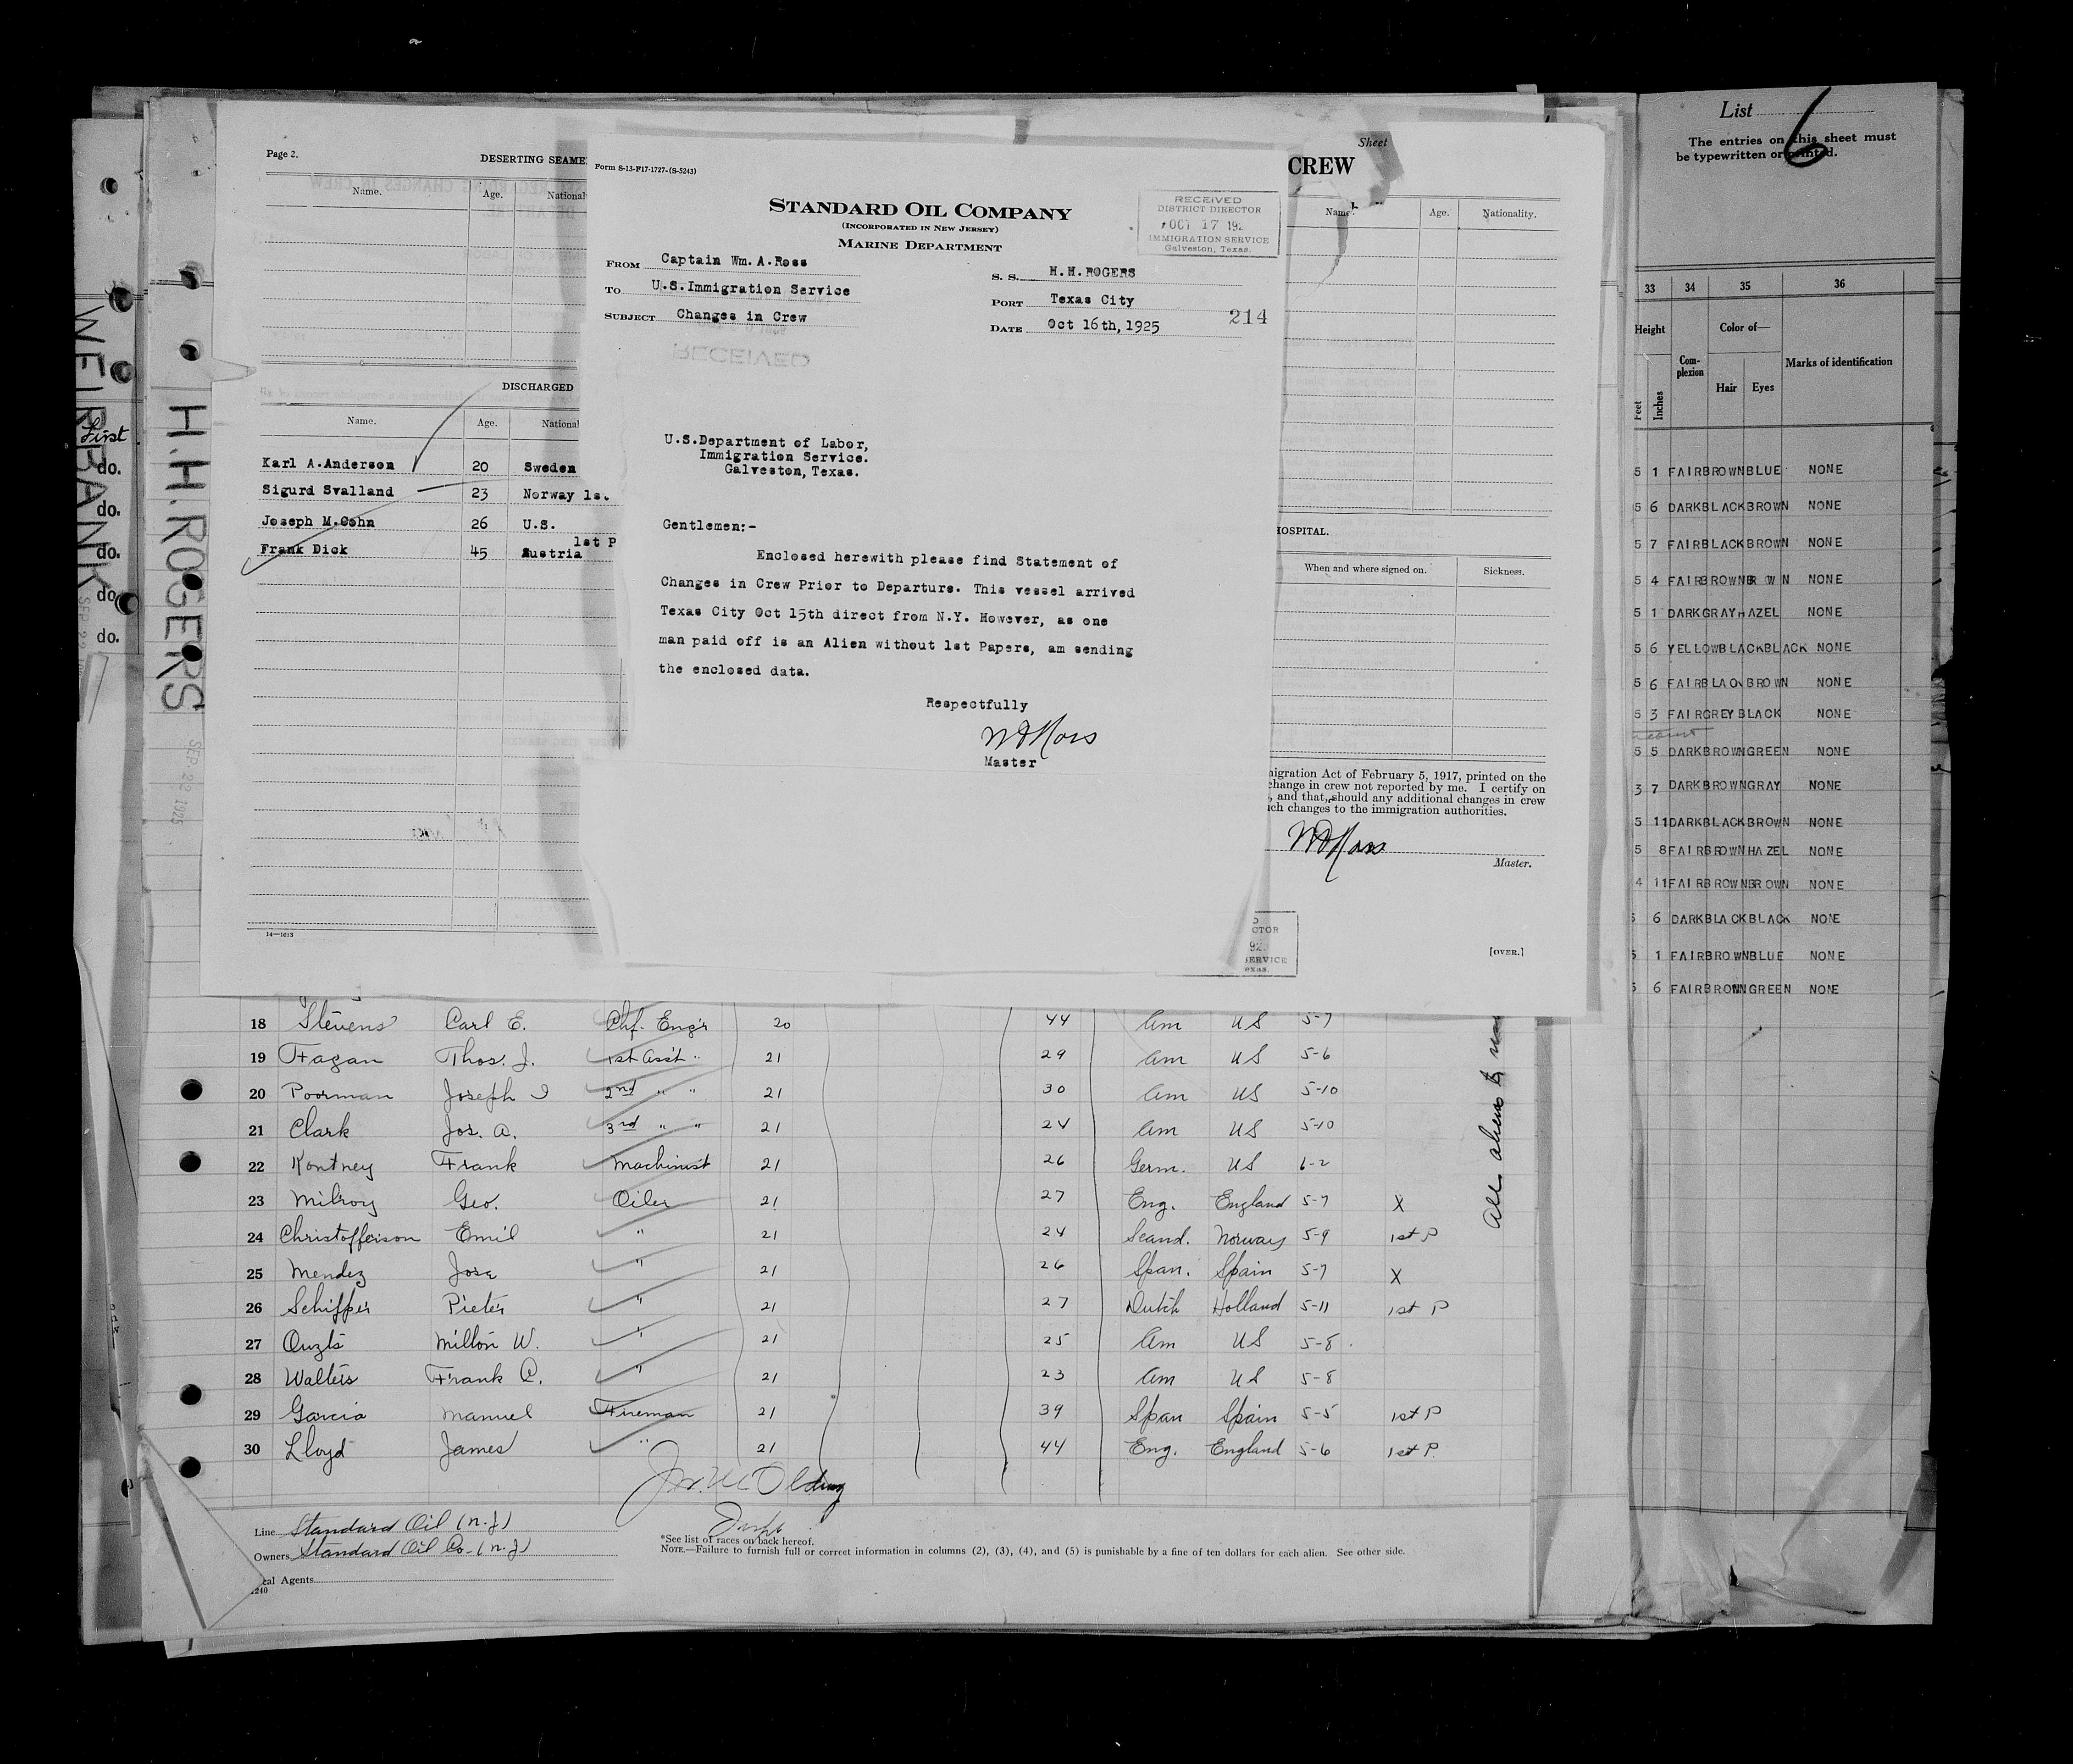 Page 2.
DESERTING SEAME
Name. Age. National
DISCHARGED
Name. Age. National
Karl A.Anderson 20 Sweden
Sigurd Svalland 23 Norway 1s
Joseph M.Cohn 26 U.S.
1st P
Frank Dick 45 Austria
14—1613
WELRBANK
First
do.
do.
do.
do.
do.
H.H.ROGERS
SEP. 22 1925
Form S-13-F17-1727-(S-5243)
STANDARD OIL COMPANY
(INCORPORATED IN NEW JERSEY)
MARINE DEPARTMENT
RECEIVED
DISTRICT DIRECTOR
OCT 17 192
IMMIGRATION SERVICE
Galveston, Texas.
FROM Captain Wm.A.Ross
TO U.S.Immigration Service
SUBJECT Changes in Crew
S. S. H.H.ROGERS
PORT Texas City
DATE Oct 16th,1925
214
RECEIVED
U.S.Department of Labor,
Immigration Service.
Galveston,Texas.
Gentlemen:-
Enclosed herewith please find Statement of
Changes in Crew Prior to Departure. This vessel arrived
Texas City Oct 15th direct from N.Y. However, as one
man paid off is an Alien without 1st Papers, am sending
the enclosed data.
Respectfully
W A Ross
Master
Sheet
CREW
Name. Age. Nationality.
HOSPITAL.
When and where signed on. Sickness.
migration Act of February 5, 1917, printed on the
change in crew not reported by me. I certify on
, and that, should any additional changes in crew
uch changes to the immigration authorities.
W A Ross
Master.
CTOR
92
SERVICE
exas.
[OVER.]
18 Stevens Carl E. Chf. Eng'r 20 44 Am US 5-7
19 Fagan Thos. J. 1st Ass't " 21 29 Am US 5-6
20 Poorman Joseph I 2nd " " 21 30 Am US 5-10
21 Clark Jos. A. 3rd " " 21 24 Am US 5-10
22 Kontney Frank Machinist 21 26 Germ. US 6-2
23 Milroy Geo. Oiler 21 27 Eng. England 5-7 X
24 Christofferson Emil " 21 24 Scand. Norway 5-9 1st P
25 Mendez Jose " 21 26 Span. Spain 5-7 X
26 Schipper Pieter " 21 27 Dutch Holland 5-11 1st P
27 Ouzts Milton W. " 21 25 Am US 5-8
28 Walters Frank A. " 21 23 Am US 5-8
29 Garcia Manuel Fireman 21 39 Span Spain 5-5 1st P
30 Lloyd James " 21 44 Eng. England 5-6 1st P.
All aliens to
Line Standard Oil (N.J)
Owners Standard Oil Co. (N.J)
cal Agents
1240
*See list of races on back hereof.
NOTE.—Failure to furnish full or correct information in columns (2), (3), (4), and (5) is punishable by a fine of ten dollars for each alien. See other side.
List 6
The entries on this sheet must
be typewritten or printed.
33 34 35 36
Height Complexion Color of— Marks of identification
Feet Inches Hair Eyes
5 1 FAIR BROWN BLUE NONE
5 6 DARK BLACK BROWN NONE
5 7 FAIR BLACK BROWN NONE
5 4 FAIR BROWN BROWN NONE
5 1 DARK GRAY HAZEL NONE
5 6 YELLOW BLACK BLACK NONE
5 6 FAIR BLACK BROWN NONE
5 3 FAIR GREY BLACK NONE
5 5 DARK BROWN GREEN NONE
3 7 DARK BROWN GRAY NONE
5 11 DARK BLACK BROWN NONE
5 8 FAIR BROWN HAZEL NONE
4 11 FAIR BROWN BROWN NONE
5 6 DARK BLACK BLACK NONE
5 1 FAIR BROWN BLUE NONE
5 6 FAIR BROWN GREEN NONE